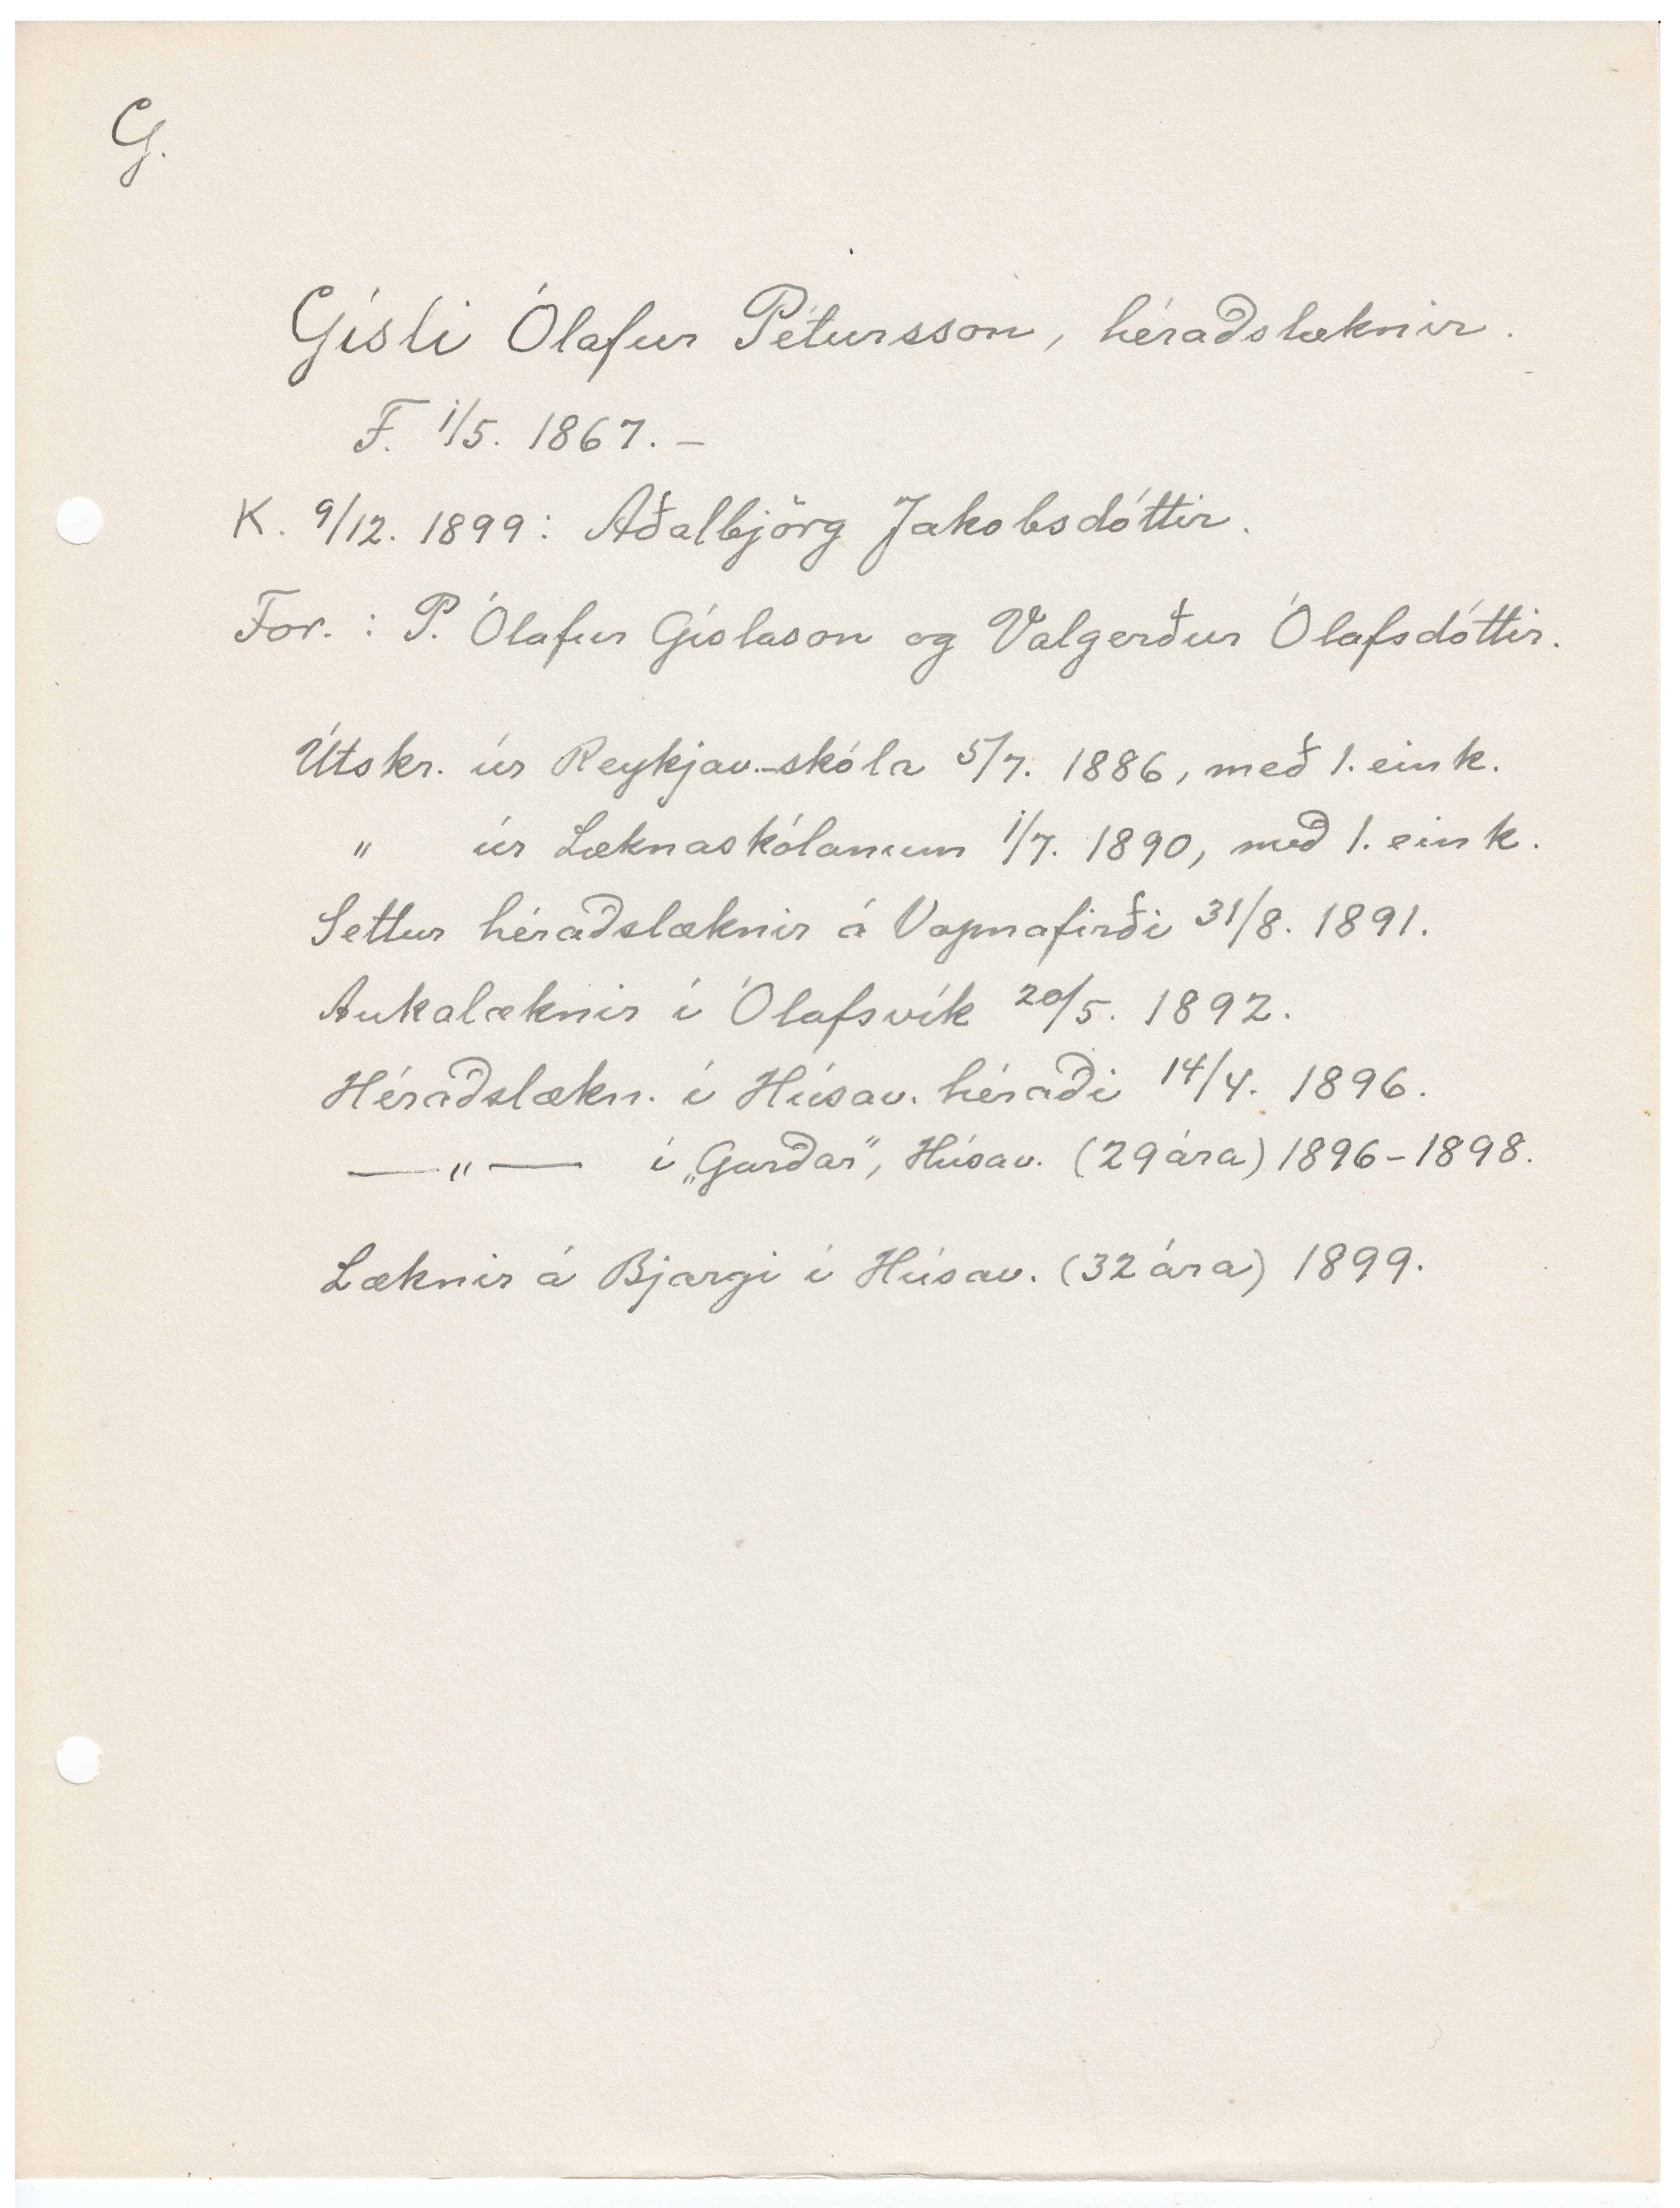 G.
Gísli Ólafur Pétursson, héraðslæknir.
F. 1/5. 1867. –
K. 9/12. 1899: Aðalbjörg Jakobsdóttir.
For.: P. Ólafur Gíslason og Valgerður Ólafsdóttir.
Útskr. úr Reykjav.-skóla 5/7. 1886, með 1. eink.
" úr Læknaskólanum 1/7. 1890, með 1. eink.
Settur héraðslæknir á Vopnafirði 31/8. 1891.
Aukalæknir í Ólafsvík 20/5. 1892.
Héraðslækn. í Húsav. héraði 14/4. 1896.
—„— í „Garðar", Húsav. (29 ára) 1896-1898.
Læknir á Bjargi í Húsav. (32 ára) 1899.